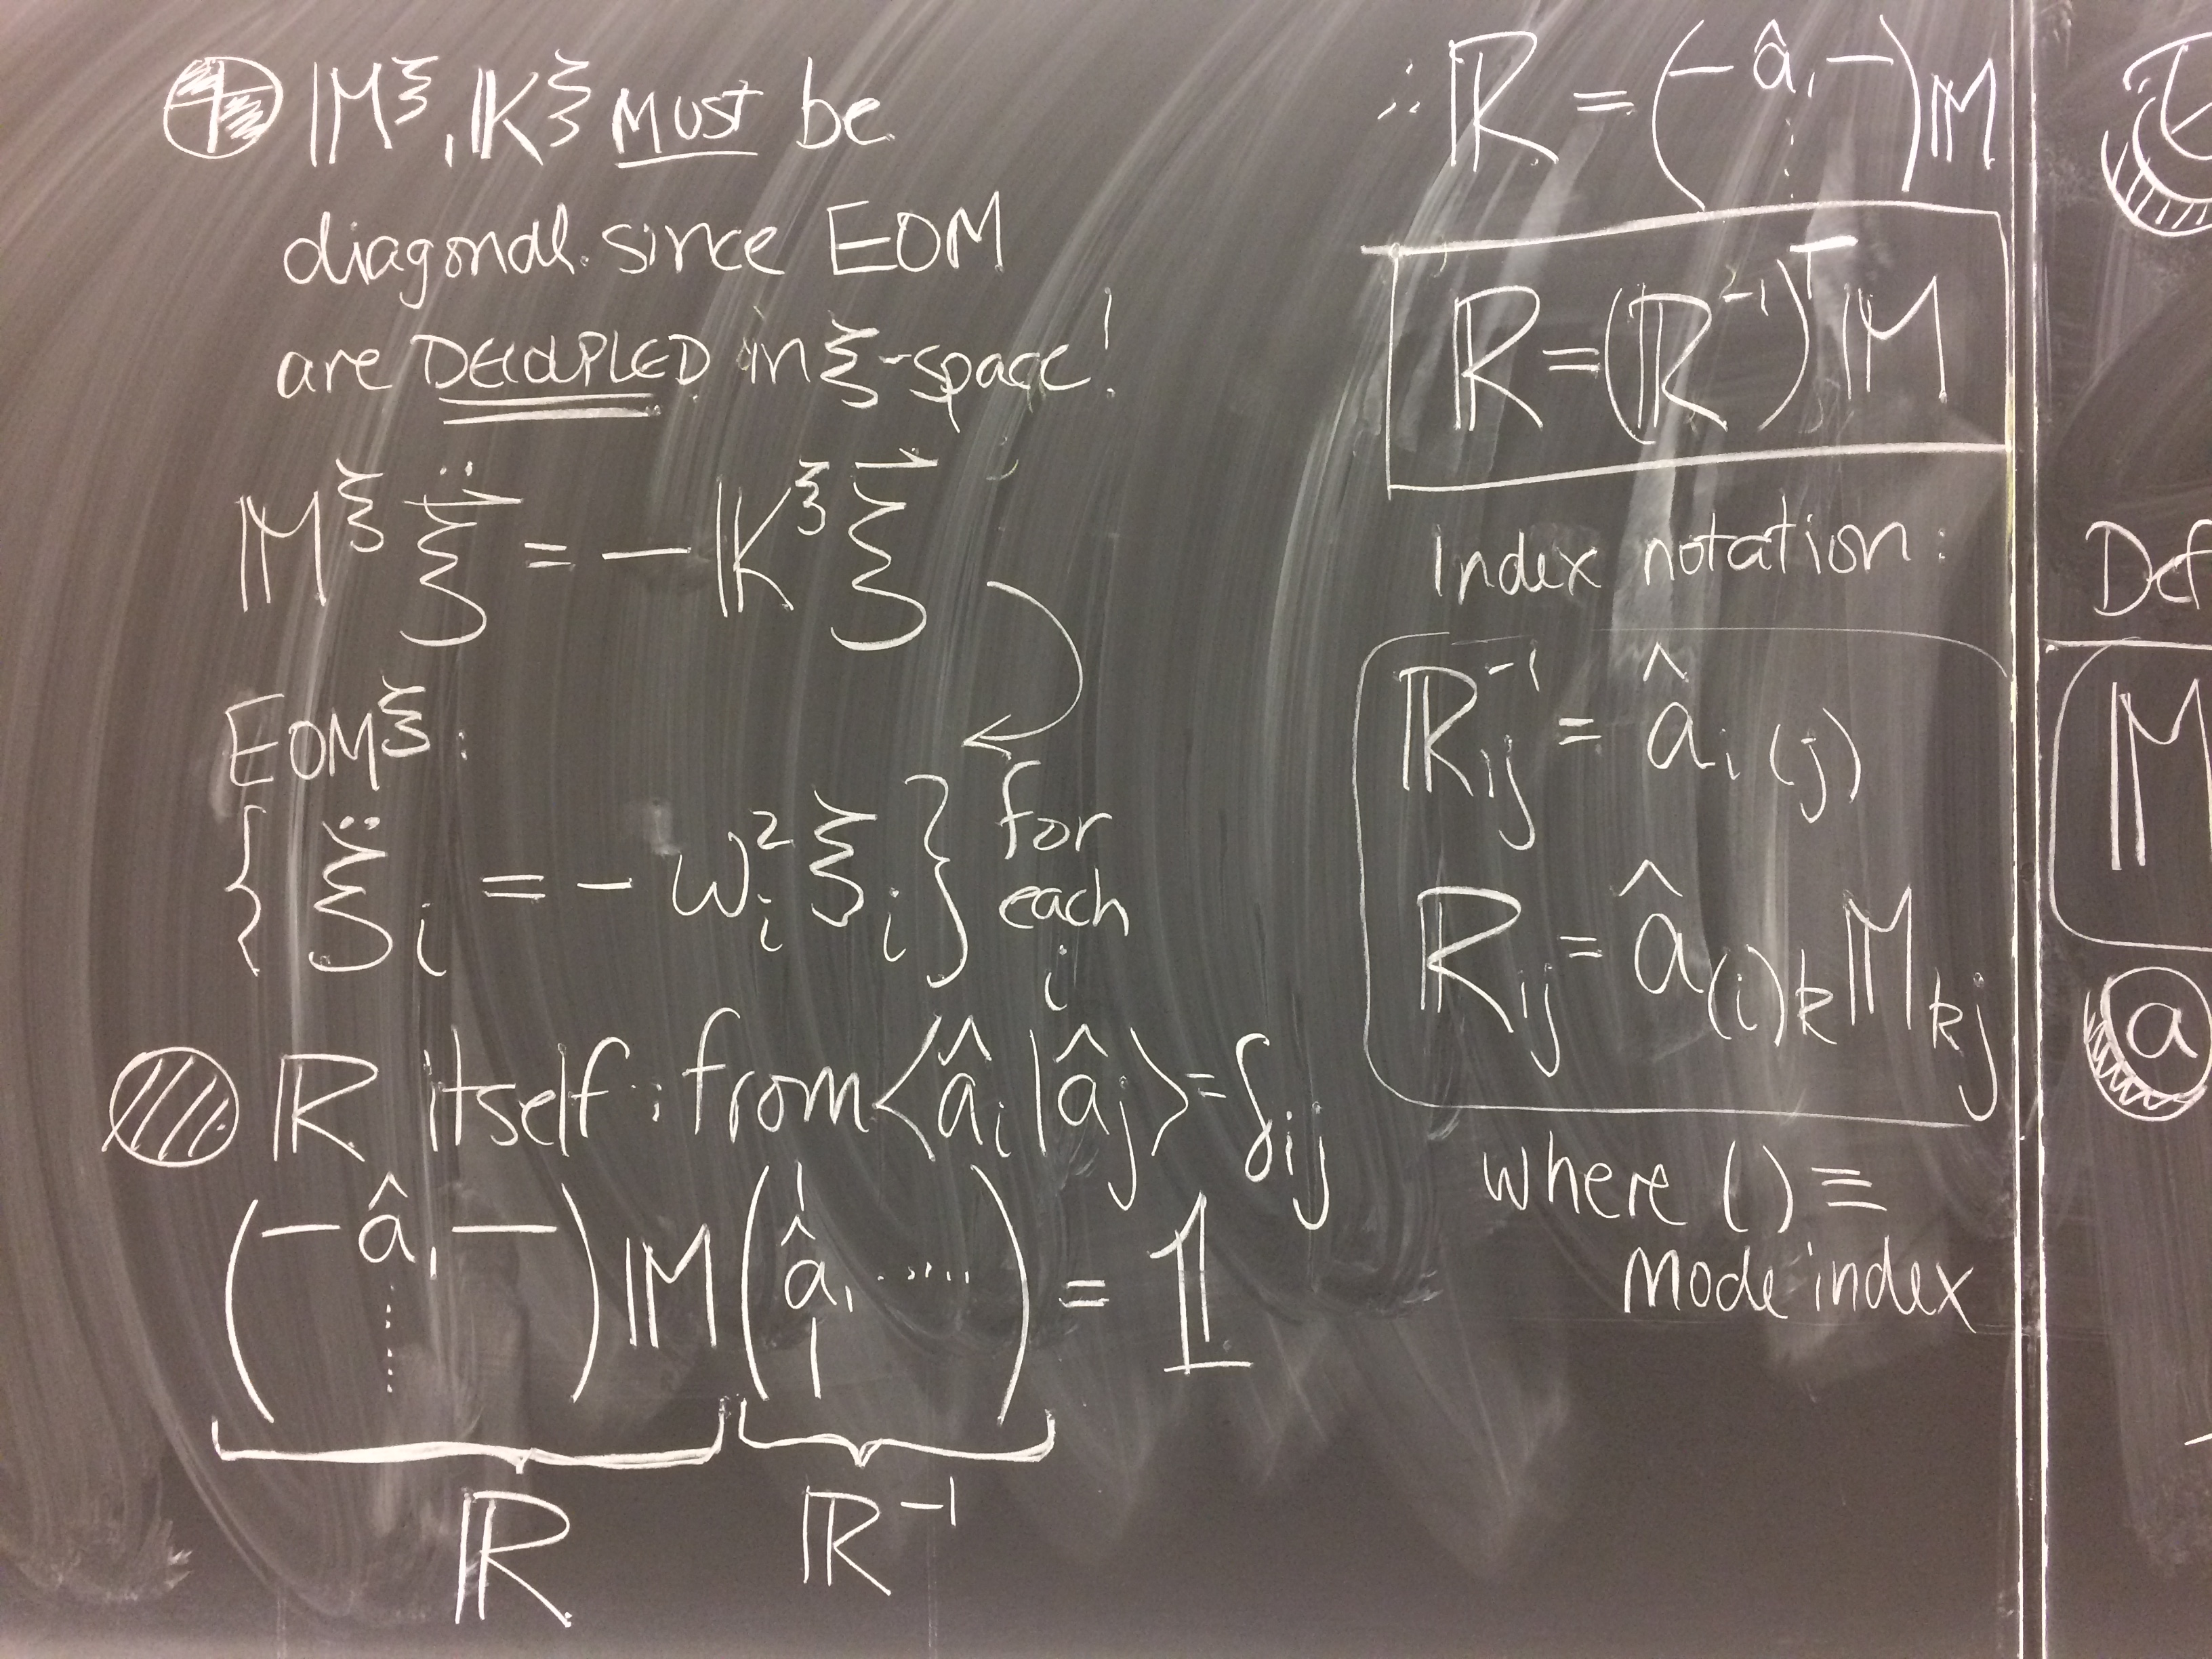 ⊕ 𝕄^ξ, 𝕂^ξ MUST be
diagonal since EOM
are DECOUPLED in ξ-space!
𝕄^ξ ξ⃗̈ = - 𝕂^ξ ξ⃗
EOM^ξ:
{ ξ̈_i = - ω_i^2 ξ_i } for each i
ℝ itself: from ⟨â_i | â_j⟩ = δ_ij
(— â_1 — ⋮) 𝕄 (| â_1 | ......) = 𝟙
ℝ ℝ^-1
∴ ℝ = (— â_1 — ⋮) 𝕄
ℝ = (ℝ^-1)^T 𝕄
Index notation:
ℝ^-1_ij = â_i(j)
ℝ_ij = â_(i)k 𝕄_kj
where ( ) ≡
Mode index
Def
𝕄
a